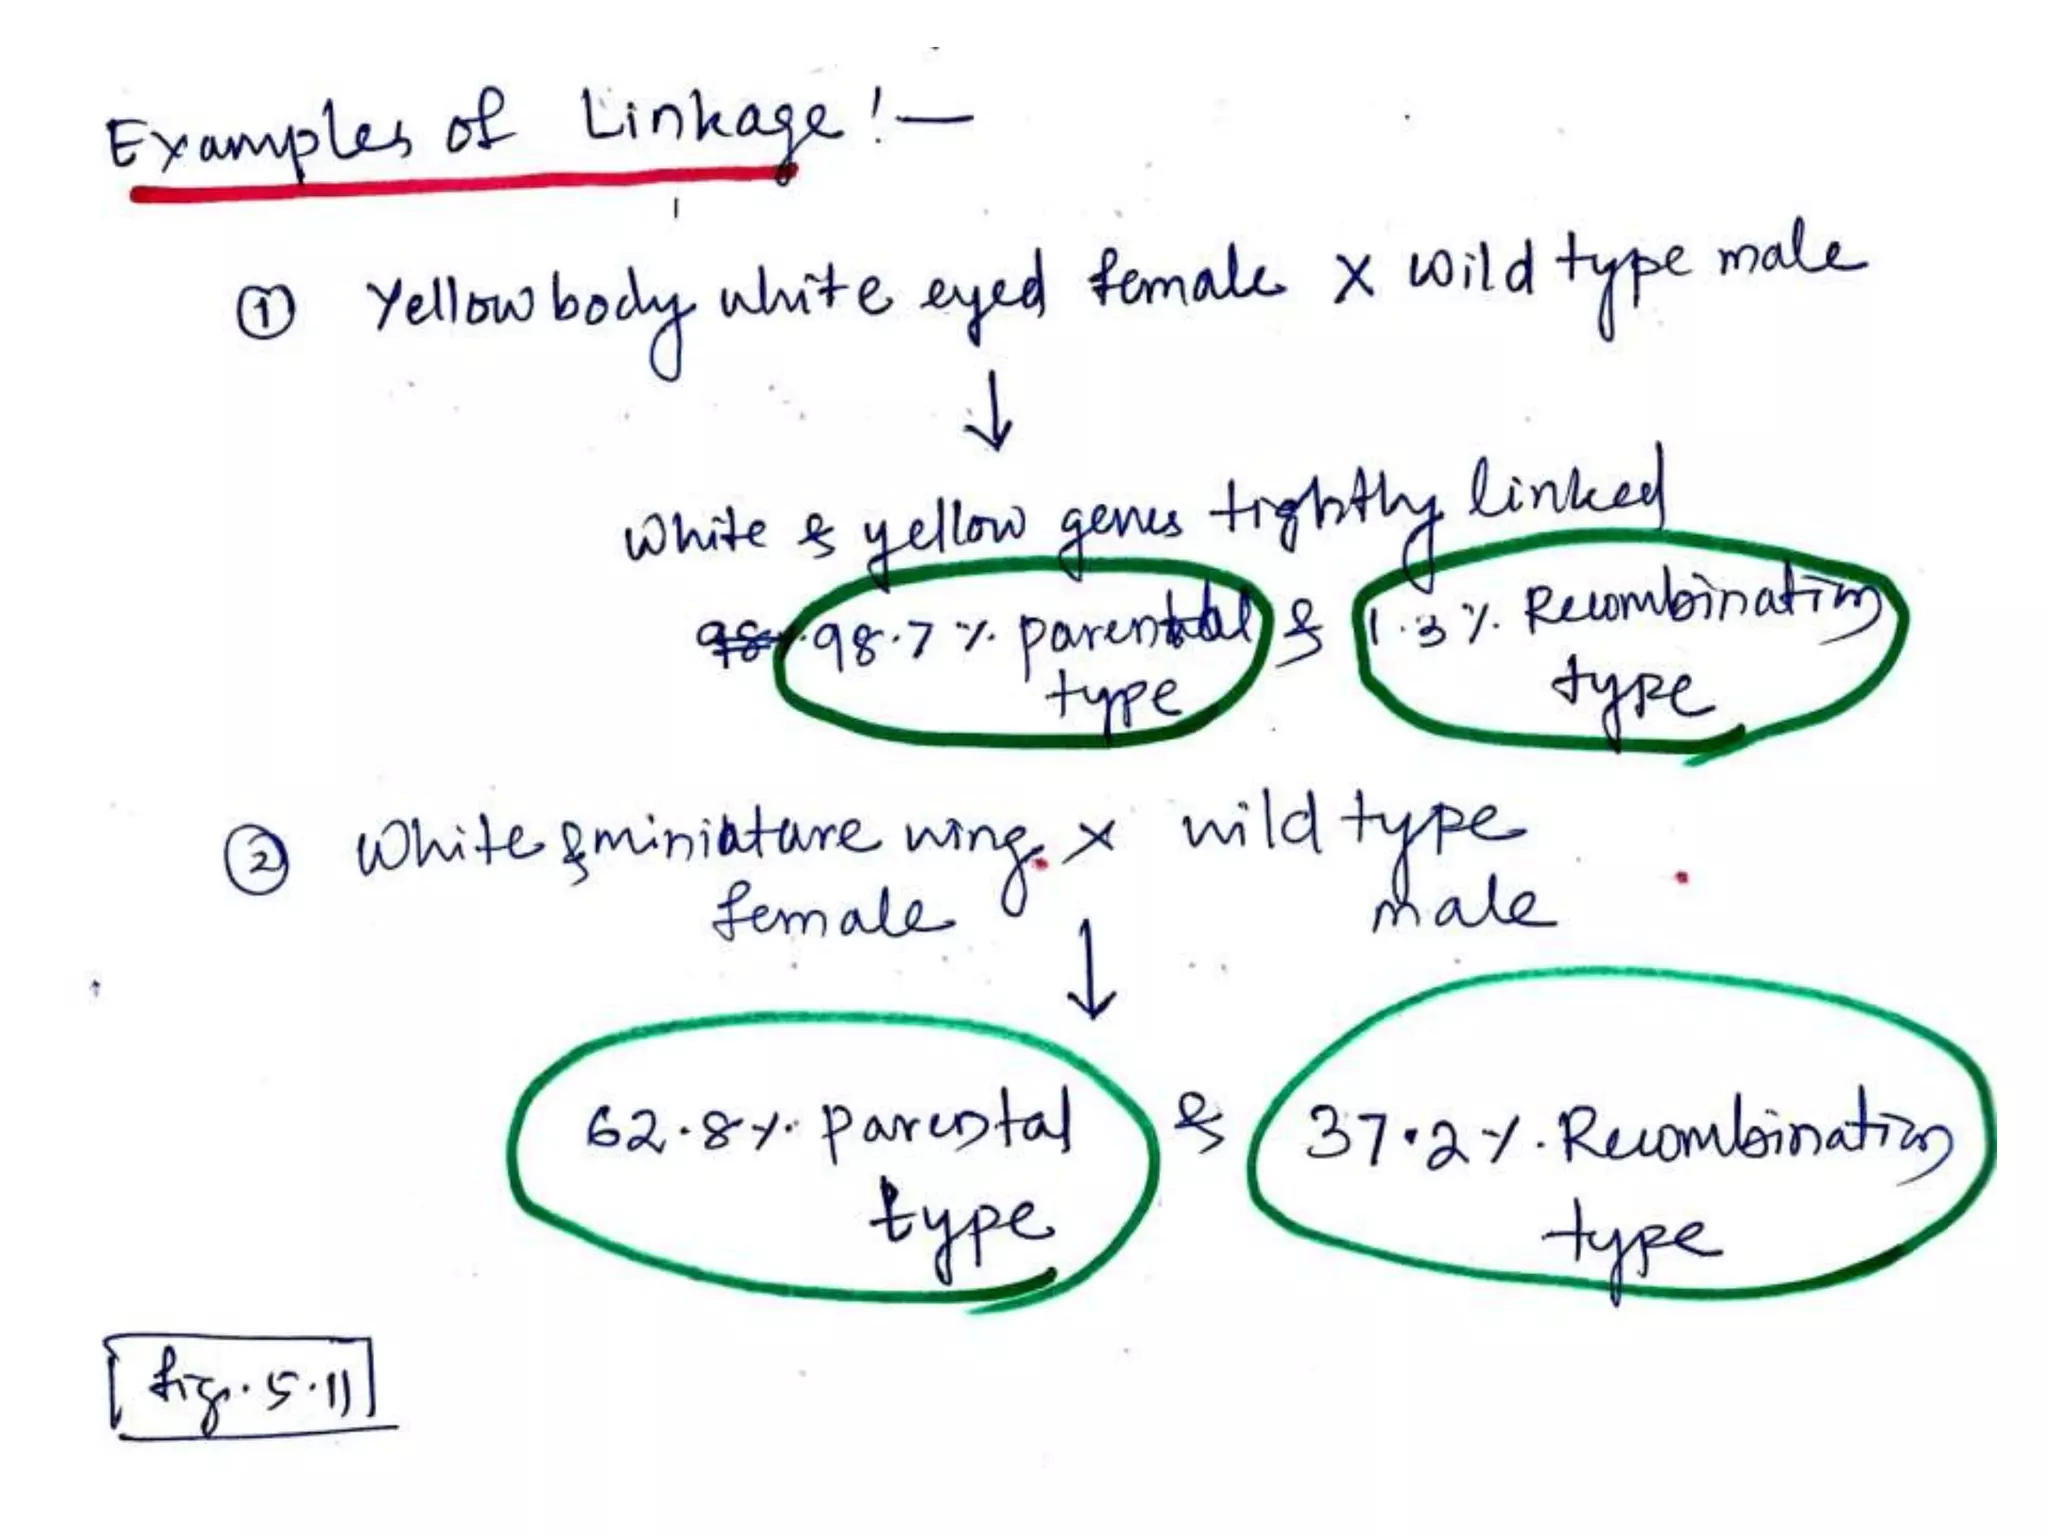 Examples of Linkage!—
① Yellow body white eyed female X wild type male
↓
White & yellow genes tightly linked
98.7% parental & 1.3% Recombination
type type
② White & miniature wing. X wild type
female male
↓
62.8% parental & 37.2% Recombination
type type
fig. 5.11